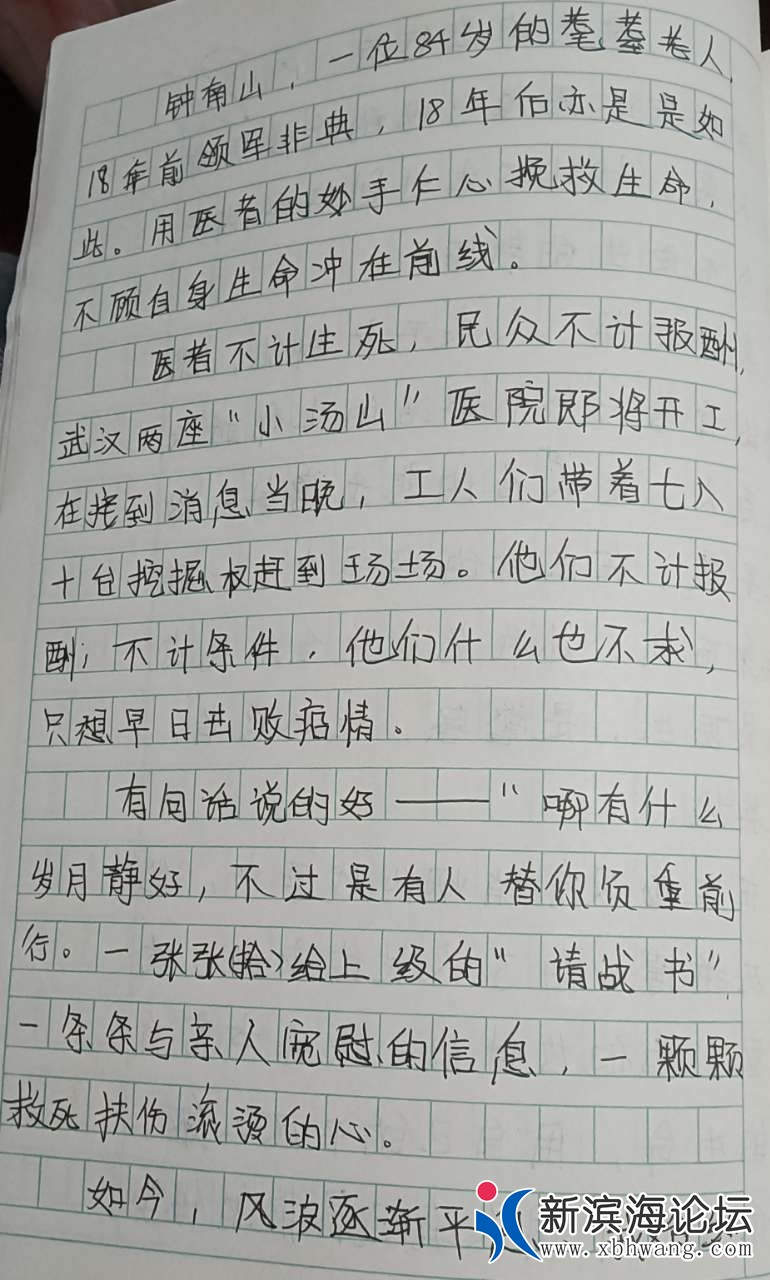 钟南山，一位84岁的耄耋老人，
18年前领军非典，18年后亦是是如
此。用医者的妙手仁心挽救生命，
不顾自身生命冲在前线。
医者不计生死，民众不计报酬，
武汉两座“小汤山”医院即将开工，
在接到消息当晚，工人们带着七八
十台挖掘权赶到场场。他们不计报
酬；不计条件，他们什么也不求，
只想早日击败疫情。
有句话说的好——“哪有什么
岁月静好，不过是有人替你负重前
行。一张张(拾)给上级的“请战书”，
一条条与亲人宽慰的信息，一颗颗
救死扶伤滚烫的心。
如今，风波逐渐平
新滨海论坛
www.xbhwang.com